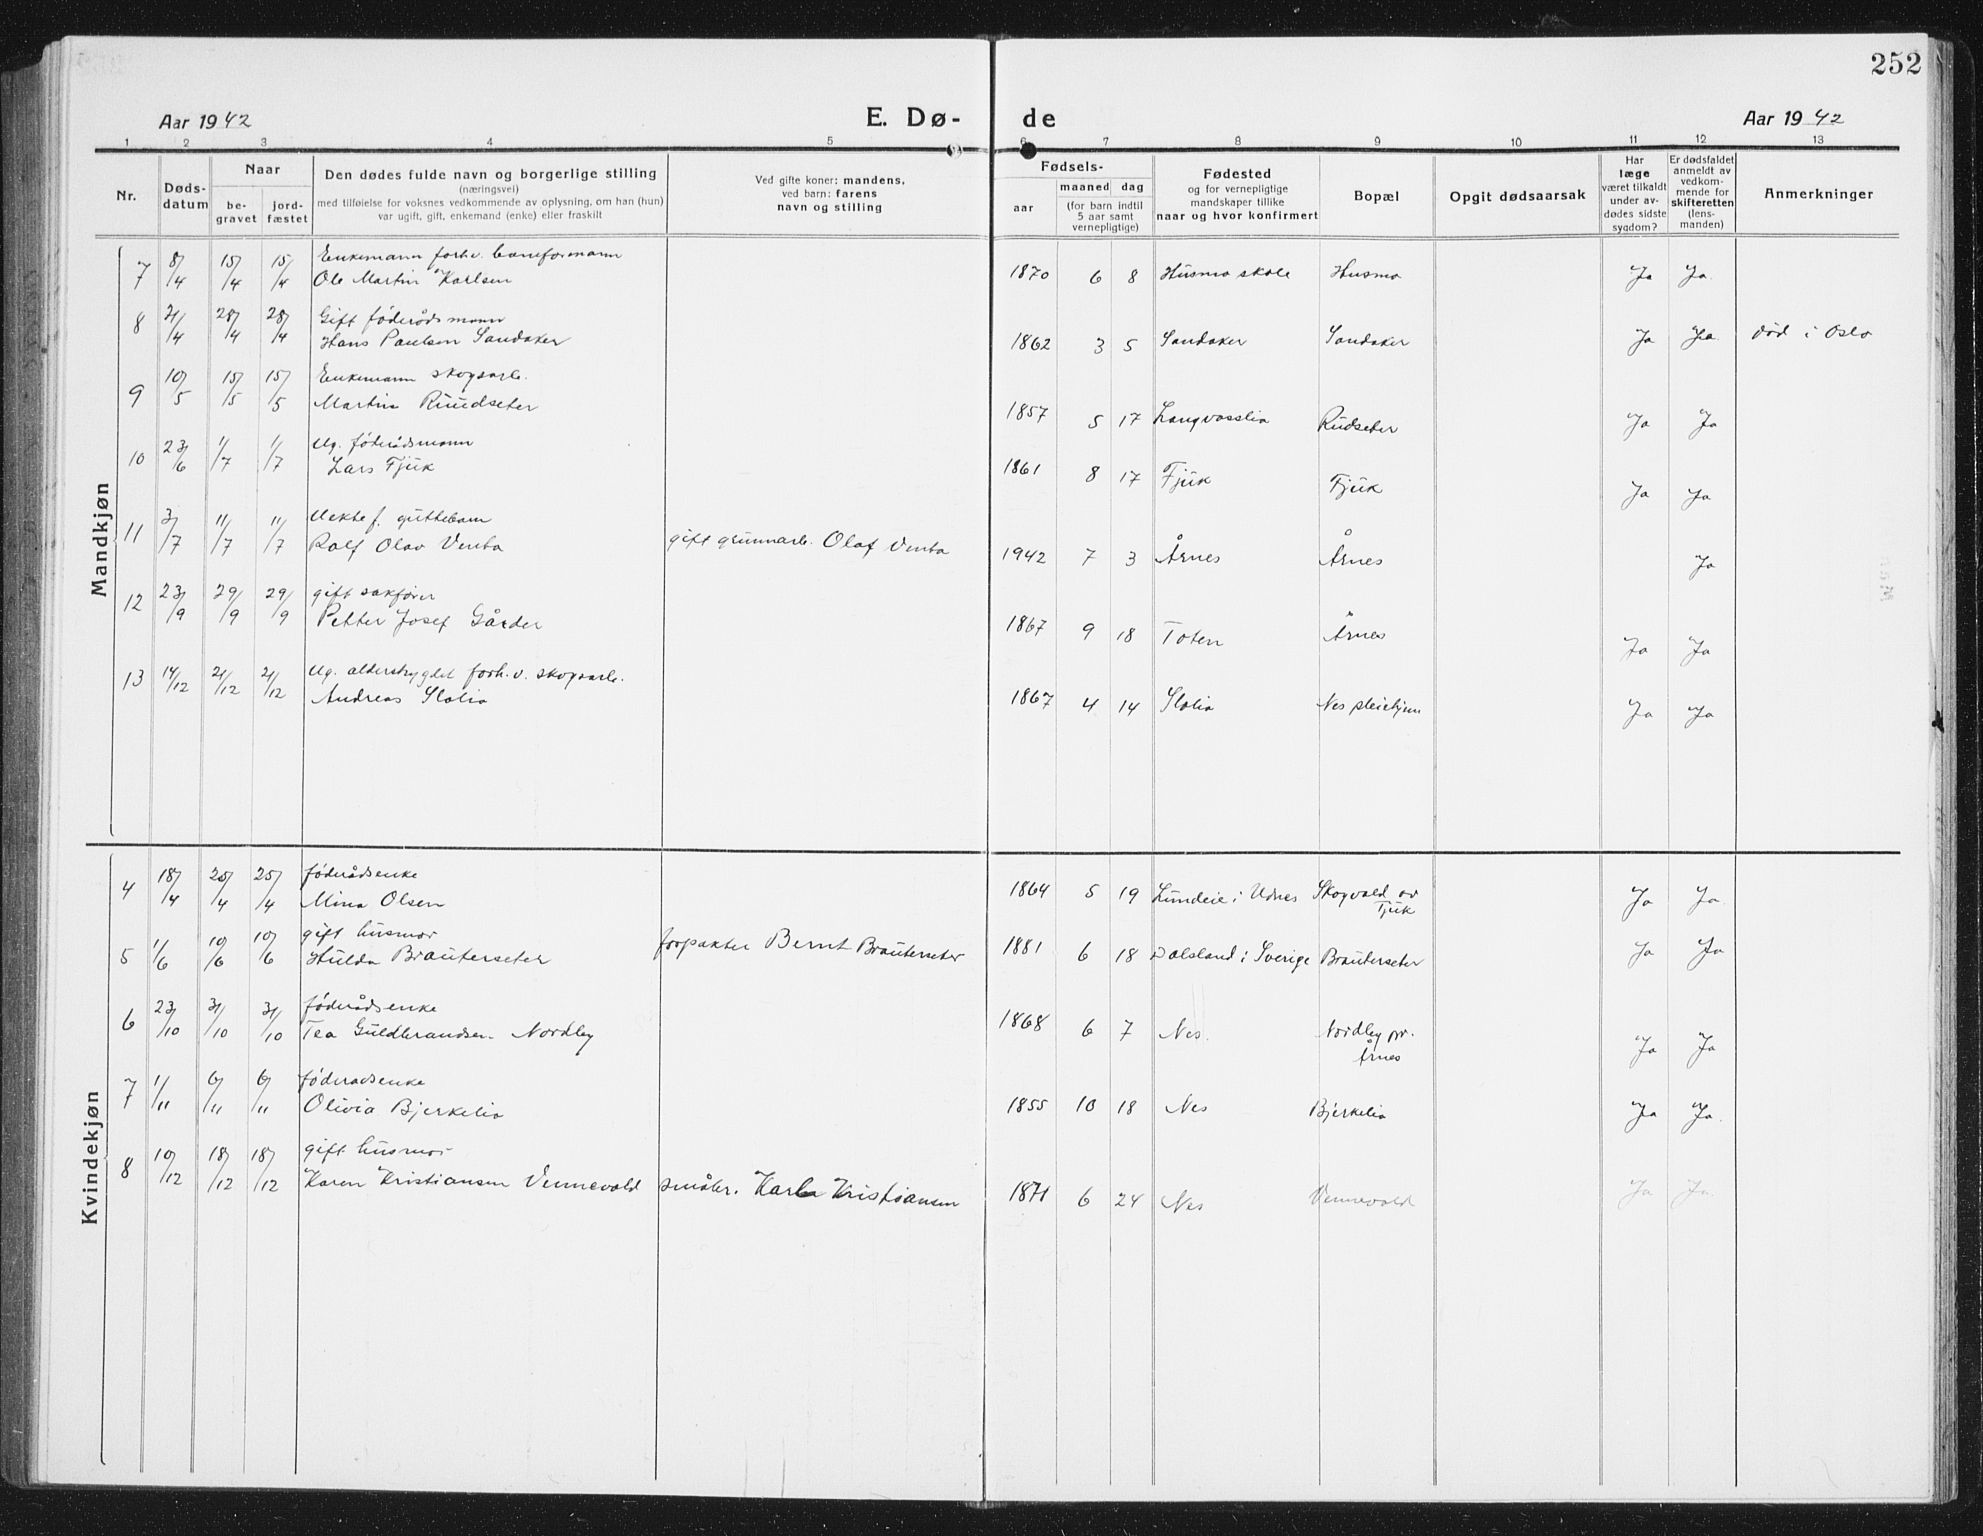 252
Aar 1942 E. Dø- de Aar 1942
1 2 3 4 5 6 7 8 9 10 11 12 13
Nr.
Døds-
datum
Naar
be-
gravet
jord-
fæstet
Den dødes fulde navn og borgerlige stilling
(næringsvei)
med tilføielse for voksnes vedkommende av oplysning, om han (hun)
var ugift, gift, enkemand (enke) eller fraskilt
Ved gifte koner: mandens,
ved barn: farens
navn og stilling
Fødsels-
aar
maaned dag
(for barn indtil
5 aar samt
vernepligtige)
Fødested
og for vernepligtige
mandskaper tillike
naar og hvor konfirmert
Bopæl
Opgit dødsaarsak
Har
læge
været tilkaldt
under av-
dødes sidste
sygdom?
Er dødsfaldet
anmeldt av
vedkom-
mende for
skifteretten
(lens-
manden)
Anmerkninger
Mandkjøn
Enkemann forhv. baneformann
7 8/4 15/4 15/4 Ole Martin Karlsen 1870 6 8 Husmo skole Husmo Ja Ja
Gift føderådsmann
8 21/4 28/4 28/4 Hans Paulsen Sandaker 1862 3 5 Sandaker Sandaker Ja Ja død i Oslo
Enkemann skogsarb.
9 10/5 15/5 15/5 Martin Ruudseter 1857 5 17 Langvasslia Rudseter Ja Ja
Ug. føderådsmann
10 23/6 1/7 1/7 Lars Fjuk 1861 8 17 Fjuk Fjuk Ja Ja
Uekte f. guttebarn
11 3/7 11/7 11/7 Rolf Olav Venta gift grunnarb. Olaf Venta 1942 7 3 Årnes Årnes Ja
gift sakfører
12 23/9 29/9 29/9 Petter Josef Gårder 1867 9 18 Toten Årnes Ja Ja
Ug. alderstrygdet forh.v. skogsarb.
13 14/12 21/12 21/12 Andreas Slolia 1867 4 14 Slolia Nes pleiehjem Ja Ja
Kvindekjøn
føderådsenke
4 18/4 25/4 25/4 Mina Olsen 1864 5 19 Lundeie i Udnes Skogvold av Fjuk Ja Ja
gift husmor
5 1/6 10/6 10/6 Hulda Brauterseter forpakter Bernt Brauterseter 1881 6 18 Dalsland i Sverige Brauterseter Ja Ja
føderådsenke
6 23/10 31/10 31/10 Tea Guldbrandsen Nordby 1868 6 7 Nes. Nordby pr. Årnes Ja Ja
føderadsenke
7 1/11 6/11 6/11 Olivia Bjerkelia 1855 10 18 Nes Bjerkelia Ja Ja.
gift husmor
8 10/12 18/12 18/12 Karen Kristiansen Vennevold småbr. Karl Kristiansen 1871 6 24 Nes Vennevold Ja Ja